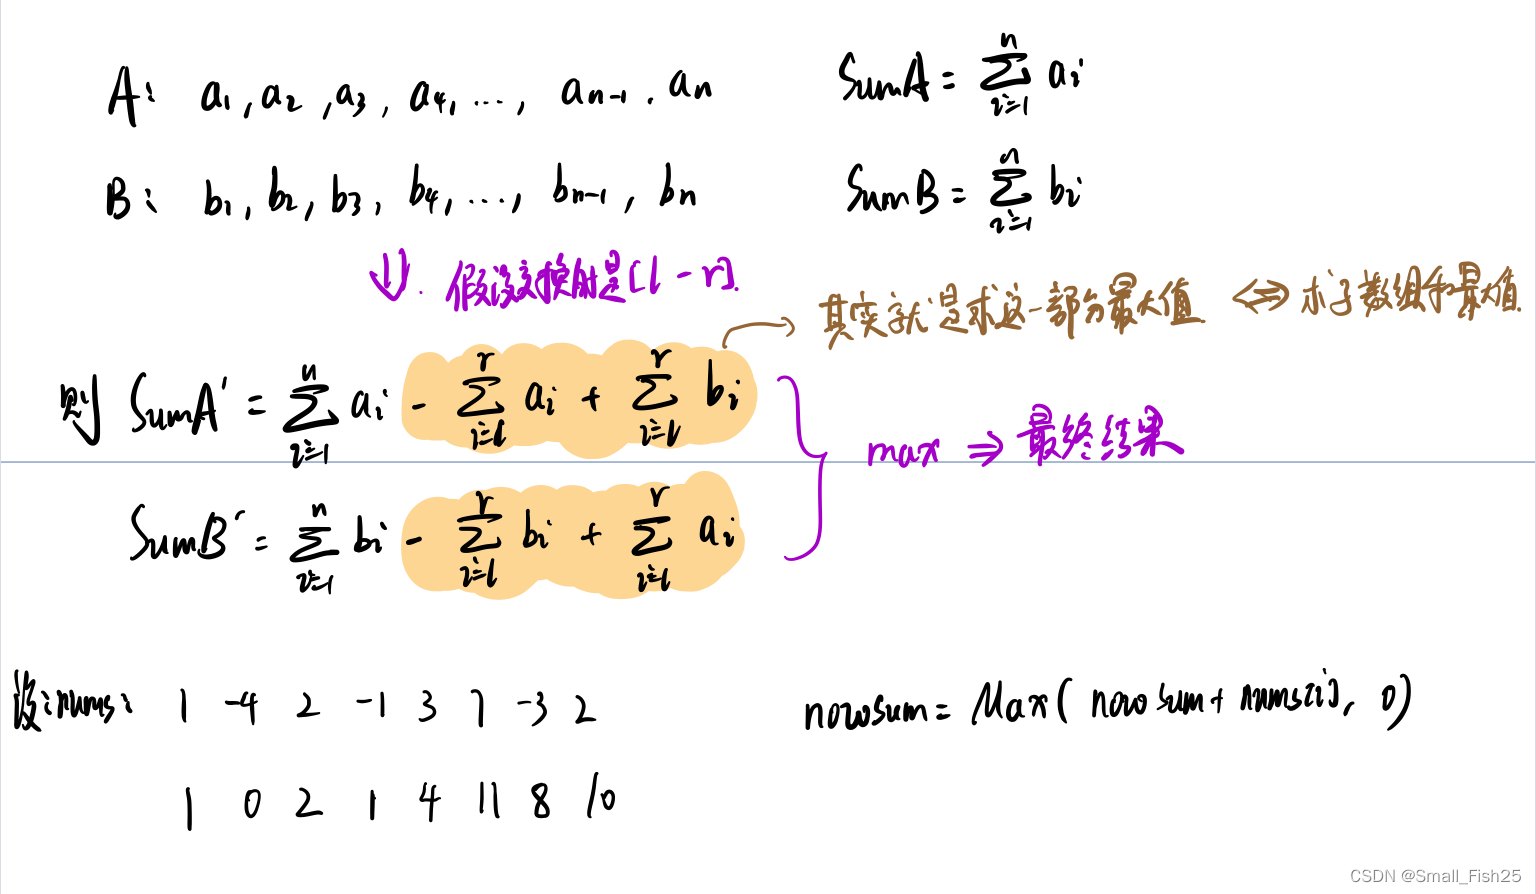 A: a₁, a₂, a₃, a₄, ..., aₙ₋₁, aₙ
SumA = ∑ᵢ₌₁ⁿ aᵢ
B: b₁, b₂, b₃, b₄, ..., bₙ₋₁, bₙ
SumB = ∑ᵢ₌₁ⁿ bᵢ
⇓. 假设交换的是[l - r].
其实就是求这一部分最大值 ⇔ 求子数组和最大值.
则 SumA' = ∑ᵢ₌₁ⁿ aᵢ - ∑ᵢ₌ₗʳ aᵢ + ∑ᵢ₌ₗʳ bᵢ
max ⇒ 最终结果
SumB' = ∑ᵢ₌₁ⁿ bᵢ - ∑ᵢ₌ₗʳ bᵢ + ∑ᵢ₌ₗʳ aᵢ
设:nums: 1 -4 2 -1 3 7 -3 2
nowsum = Max( nowsum + nums[i], 0)
1 0 2 1 4 11 8 10
CSDN @Small_Fish25